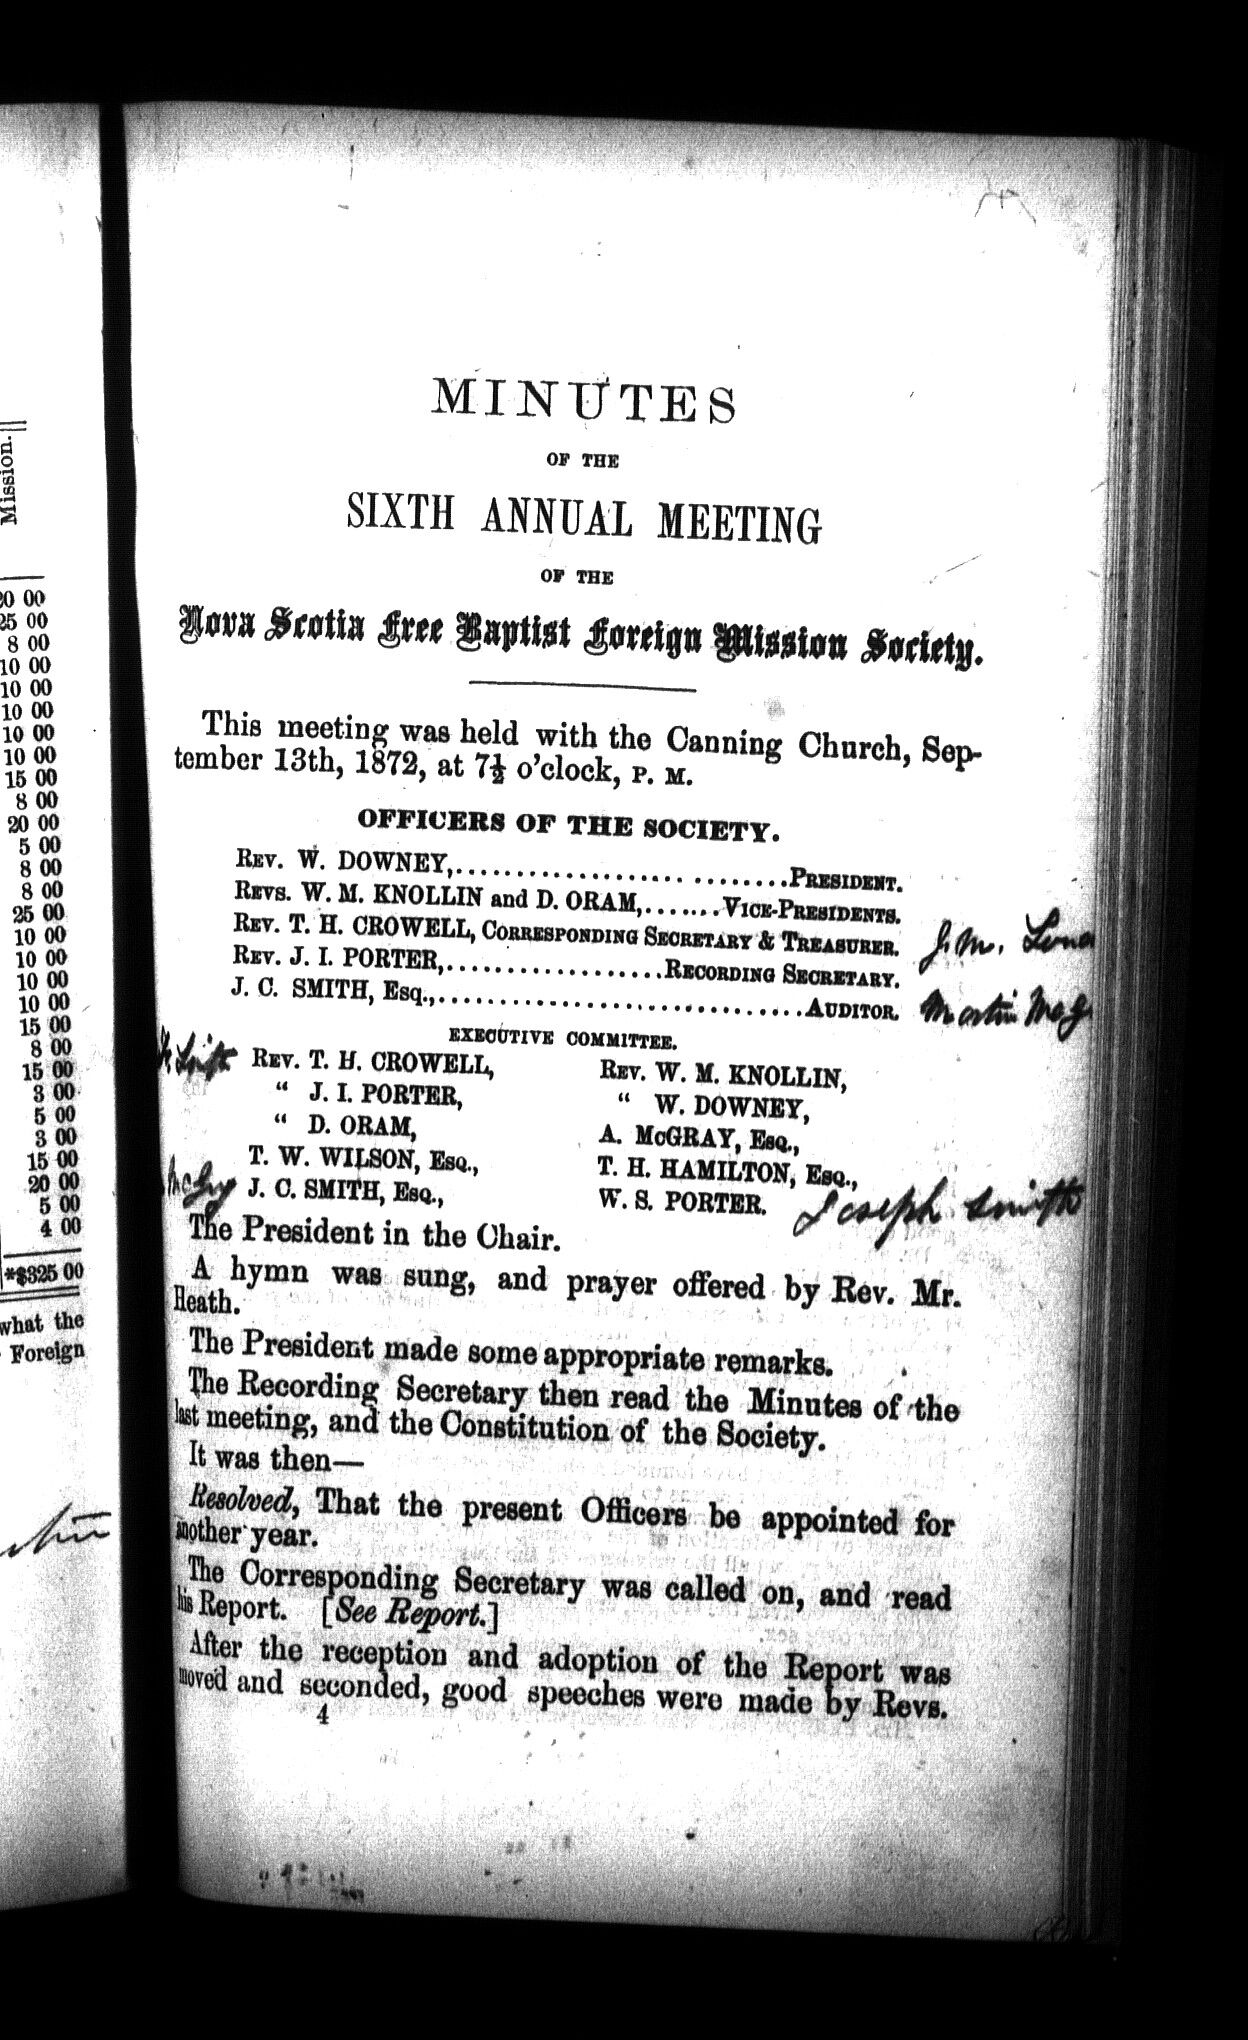 Mission.
20 00
25 00
8 00
10 00
10 00
10 00
10 00
10 00
15 00
8 00
20 00
5 00
8 00
8 00
25 00
10 00
10 00
10 00
10 00
15 00
8 00
15 00
3 00
5 00
3 00
15 00
20 00
5 00
4 00
*$325 00
what the
Foreign
MINUTES
OF THE
SIXTH ANNUAL MEETING
OF THE
Nova Scotia Free Baptist Foreign Mission Society.
This meeting was held with the Canning Church, Sep-
tember 13th, 1872, at 7½ o'clock, P. M.
OFFICERS OF THE SOCIETY.
REV. W. DOWNEY,..............................PRESIDENT.
REVS. W. M. KNOLLIN and D. ORAM,.......VICE-PRESIDENTS.
REV. T. H. CROWELL, CORRESPONDING SECRETARY & TREASURER. J. M.
REV. J. I. PORTER,..................RECORDING SECRETARY.
J. C. SMITH, Esq.,...............................AUDITOR. Martin McG
EXECUTIVE COMMITTEE.
REV. T. H. CROWELL, REV. W. M. KNOLLIN,
" J. I. PORTER, " W. DOWNEY,
" D. ORAM, A. McGRAY, ESQ.,
T. W. WILSON, ESQ., T. H. HAMILTON, ESQ.,
J. C. SMITH, ESQ., W. S. PORTER. Joseph Smith
The President in the Chair.
A hymn was sung, and prayer offered by Rev. Mr.
Heath.
The President made some appropriate remarks.
The Recording Secretary then read the Minutes of the
last meeting, and the Constitution of the Society.
It was then—
Resolved, That the present Officers be appointed for
another year.
The Corresponding Secretary was called on, and read
his Report. [See Report.]
After the reception and adoption of the Report was
moved and seconded, good speeches were made by Revs.
4